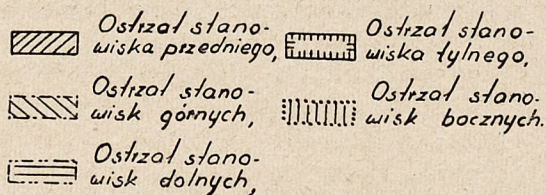 Ostrzał stano-
wiska przedniego,
Ostrzał stano-
wisk górnych,
Ostrzał stano-
wisk dolnych,
Ostrzał stano-
wiska tylnego,
Ostrzał stano-
wisk bocznych.